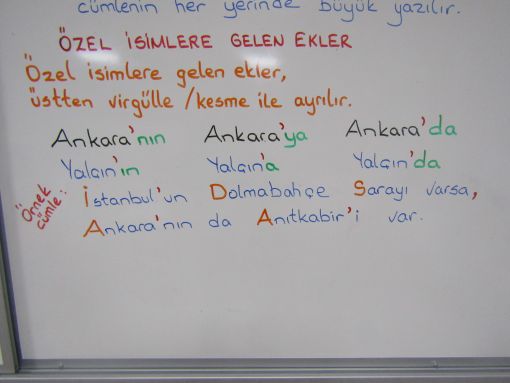 cümlenin her yerinde büyük yazılır.
ÖZEL İSİMLERE GELEN EKLER
Özel isimlere gelen ekler,
üstten virgülle /kesme ile ayrılır.
Ankara'nın Ankara'ya Ankara'da
Yalçın'ın Yalçın'a Yalçın'da
Örnek cümle: İstanbul'un Dolmabahçe Sarayı varsa,
Ankara'nın da Anıtkabir'i var.